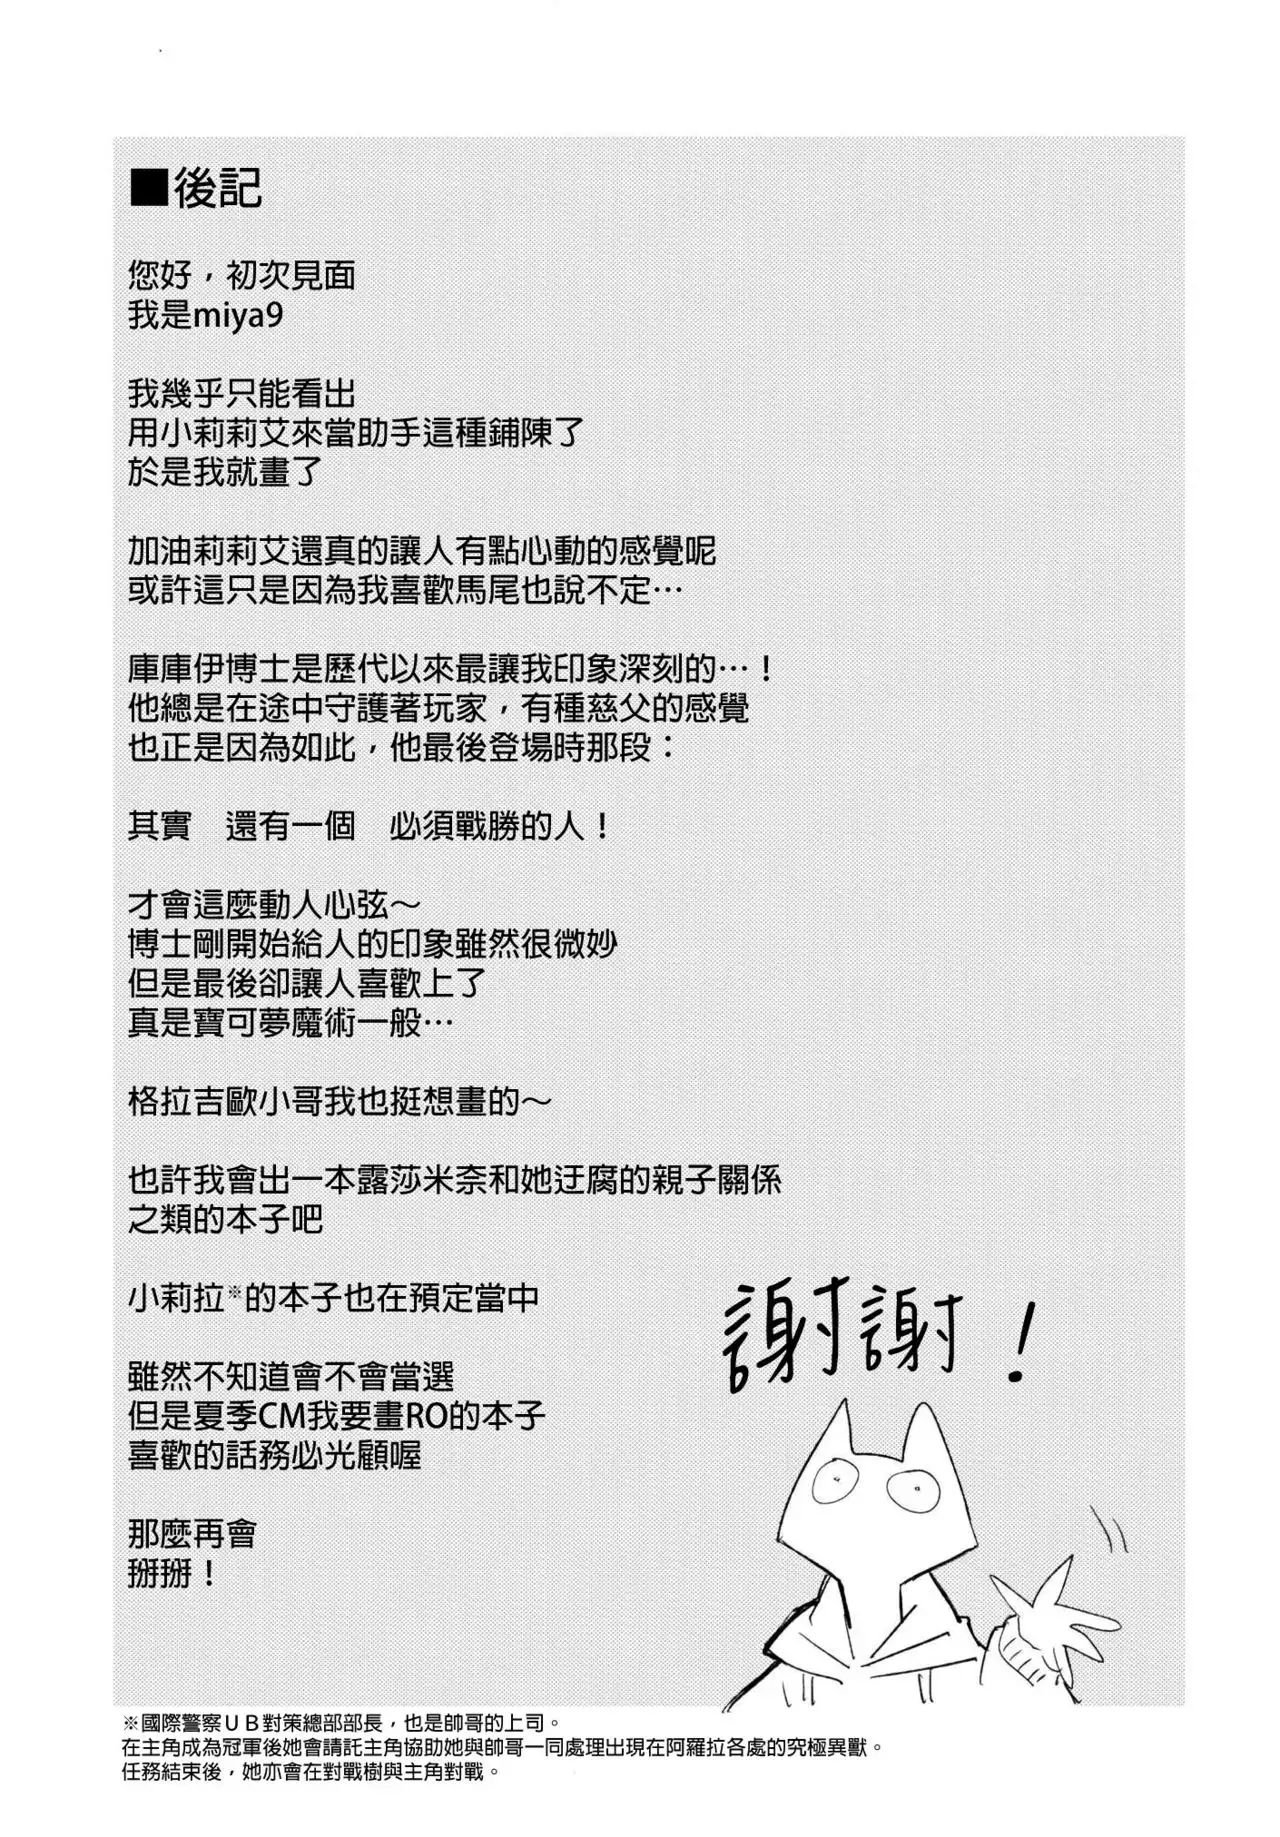 ■後記
您好，初次見面
我是miya9
我幾乎只能看出
用小莉莉艾來當助手這種鋪陳了
於是我就畫了
加油莉莉艾還真的讓人有點心動的感覺呢
或許這只是因為我喜歡馬尾也說不定…
庫庫伊博士是歷代以來最讓我印象深刻的…！
他總是在途中守護著玩家，有種慈父的感覺
也正是因為如此，他最後登場時那段：
其實　還有一個　必須戰勝的人！
才會這麼動人心弦～
博士剛開始給人的印象雖然很微妙
但是最後卻讓人喜歡上了
真是寶可夢魔術一般…
格拉吉歐小哥我也挺想畫的～
也許我會出一本露莎米奈和她迂腐的親子關係
之類的本子吧
小莉拉※的本子也在預定當中
雖然不知道會不會當選
但是夏季CM我要畫RO的本子
喜歡的話務必光顧喔
那麼再會
掰掰！
謝謝！
※國際警察ＵＢ對策總部部長，也是帥哥的上司。
在主角成為冠軍後她會請託主角協助她與帥哥一同處理出現在阿羅拉各處的究極異獸。
任務結束後，她亦會在對戰樹與主角對戰。